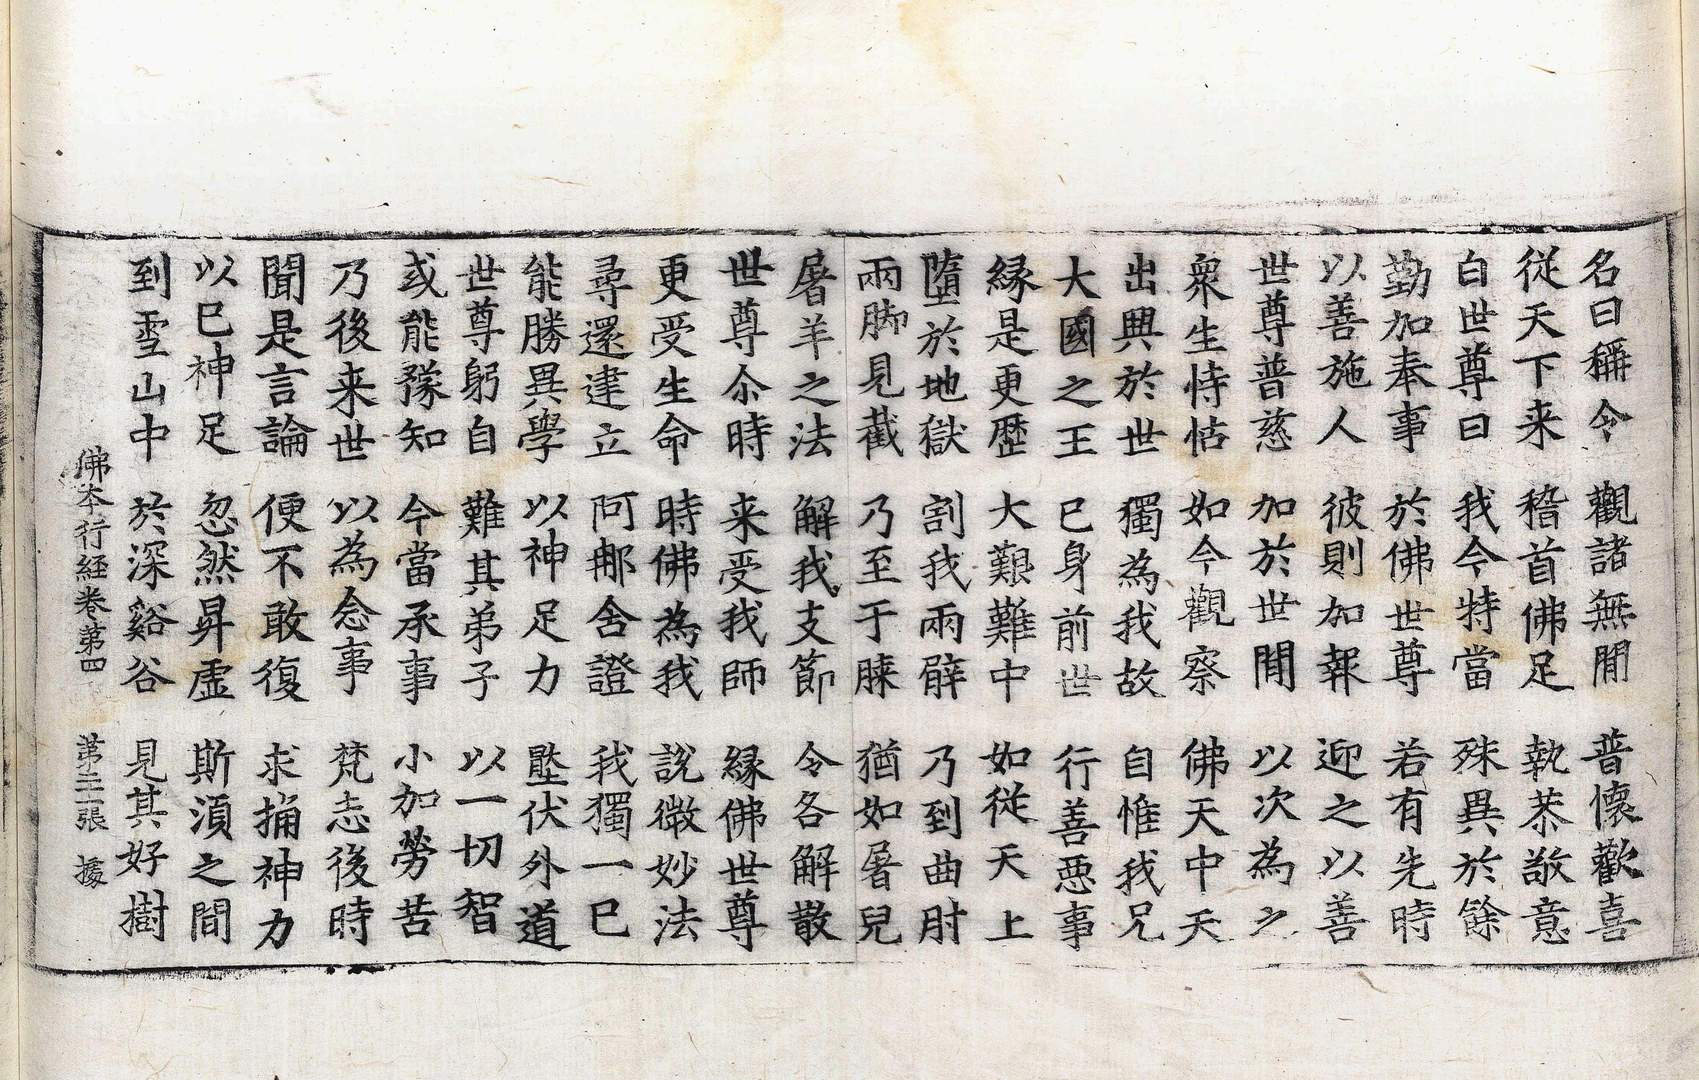 名曰稱令 觀諸無閒 普懷歡喜
從天下来 稽首佛足 執恭敬意
白世尊曰 我今特當 殊異於餘
勤加奉事 於佛世尊 若有先時
以善施人 彼則加報 迎之以善
世尊普慈 加於世閒 以次為之
衆生恃怙 如今觀察 佛天中天
出興於世 獨為我故 自惟我兄
大國之王 已身前世 行善惡事
緣是更歷 大艱難中 如從天上
墮於地獄 割我兩臂 乃到曲肘
兩脚見截 乃至于膝 猶如屠兒
屠羊之法 解我支節 令各解散
世尊尒時 来受我師 緣佛世尊
更受生命 時佛為我 說微妙法
尋還建立 阿那含證 我獨一已
能勝異學 以神足力 壓伏外道
世尊躬自 難其弟子 以一切智
或能豫知 今當承事 小加勞苦
乃後来世 以為念事 梵志後時
聞是言論 便不敢復 求捔神力
以已神足 忽然昇虛 斯湏之間
到雪山中 於深谿谷 見其好樹
佛本行經卷第四 第三張 據